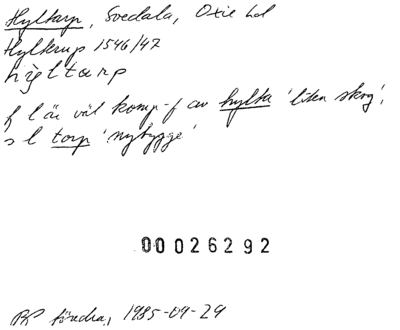 Hyltarp, Svedala, Oxie hd
Hylterup 1546/47
hyltarp
f l är väl komp-f av hylta 'liten skog',
s l torp 'nybygge'
00026292
1985-09-29